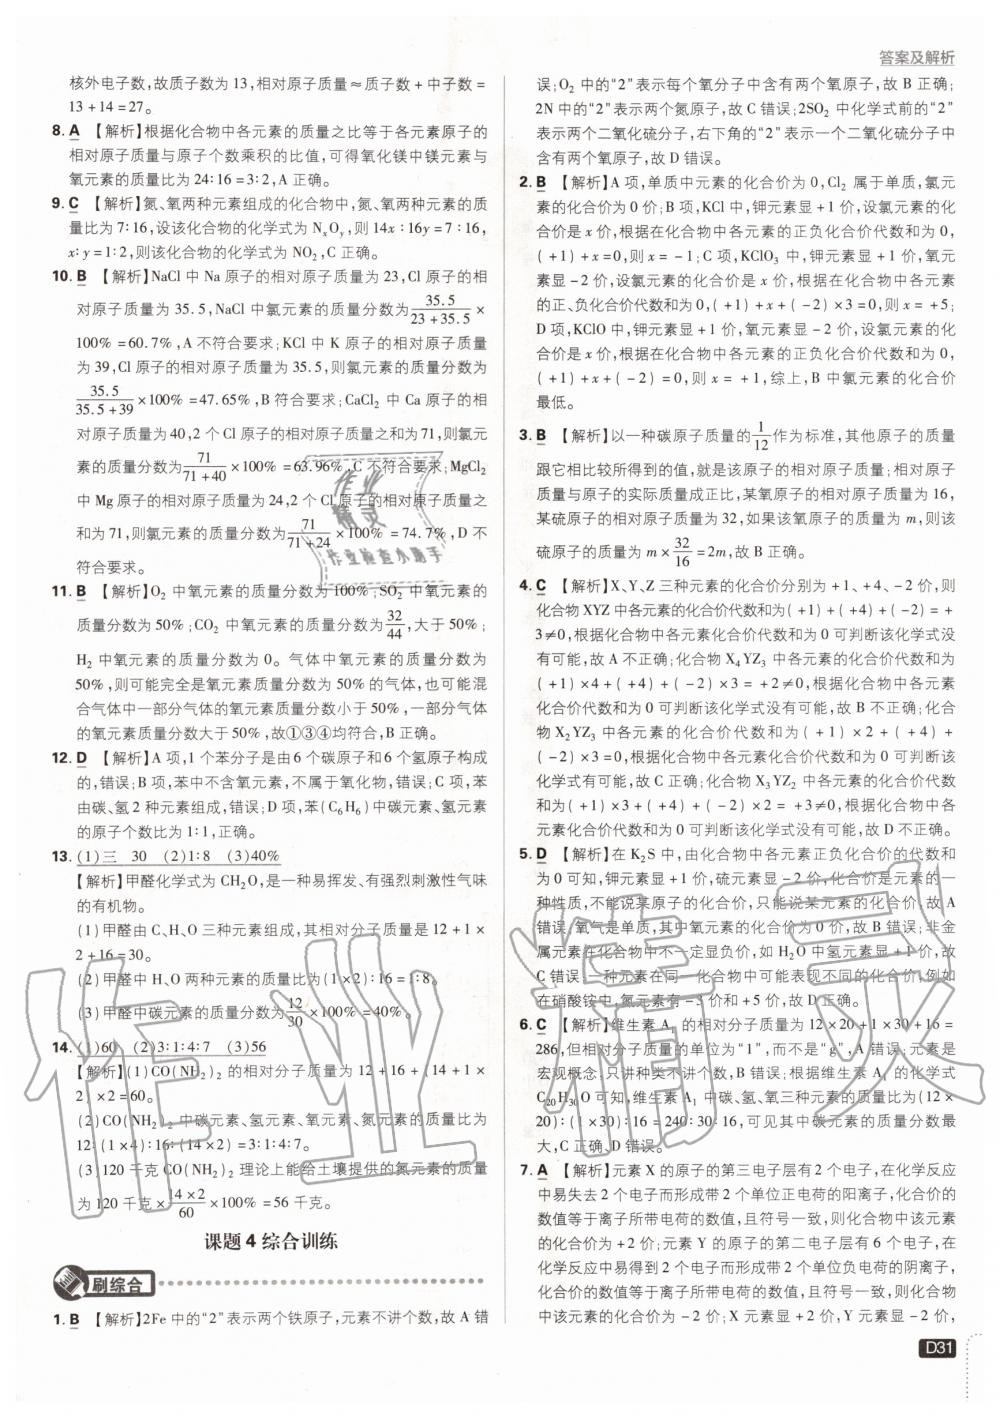 答案及解析
核外电子数,故质子数为 13,相对原子质量≈质子数+中子数=
13+14=27。
8. A 【解析】根据化合物中各元素的质量之比等于各元素原子的
相对原子质量与原子个数乘积的比值,可得氧化镁中镁元素与
氧元素的质量比为 24∶16=3∶2,A 正确。
9. C 【解析】氮、氧两种元素组成的化合物中,氮、氧两种元素的质
量比为 7∶16,设该化合物的化学式为 NxOy,则 14x∶16y=7∶16,
x∶y=1∶2,则该化合物的化学式为 NO2,C 正确。
10. B 【解析】NaCl 中 Na 原子的相对原子质量为 23,Cl 原子的相
对原子质量为 35.5,NaCl 中氯元素的质量分数为35.5/(23+35.5)×
100%=60.7%,A 不符合要求;KCl 中 K 原子的相对原子质量
为 39,Cl 原子的相对原子质量为 35.5,则氯元素的质量分数为
35.5/(35.5+39)×100%=47.65%,B 符合要求;CaCl2 中 Ca 原子的相
对原子质量为 40,2 个 Cl 原子的相对原子质量之和为 71,则氯元
素的质量分数为71/(71+40)×100%=63.96%,C 不符合要求;MgCl2
中 Mg 原子的相对原子质量为 24,2 个 Cl 原子的相对原子质量之
和为 71,则氯元素的质量分数为71/(71+24)×100%=74.7%,D 不
符合要求。
11. B 【解析】O2 中氧元素的质量分数为 100%;SO2 中氧元素的
质量分数为 50%;CO2 中氧元素的质量分数为32/44,大于 50%;
H2 中氧元素的质量分数为 0。气体中氧元素的质量分数为
50%,则可能完全是氧元素质量分数为 50%的气体,也可能混
合气体中一部分气体的氧元素质量分数小于 50%,一部分气体
的氧元素质量分数大于 50%,故①③④均符合,B 正确。
12. D 【解析】A 项,1 个苯分子是由 6 个碳原子和 6 个氢原子构成
的,错误;B 项,苯中不含氧元素,不属于氧化物,错误;C 项,苯
由碳、氢 2 种元素组成,错误;D 项,苯(C6H6)中碳元素、氢元素
的原子个数比为 1∶1,正确。
13. (1)三 30 (2)1∶8 (3)40%
【解析】甲醛化学式为 CH2O,是一种易挥发、有强烈刺激性气味
的有机物。
(1)甲醛由 C、H、O 三种元素组成,其相对分子质量是 12+1×
2+16=30。
(2)甲醛中 H、O 两种元素的质量比为(1×2)∶16=1∶8。
(3)甲醛中碳元素的质量分数为12/30×100%=40%。
14. (1)60 (2)3∶1∶4∶7 (3)56
【解析】(1)CO(NH2)2 的相对分子质量为 12+16+(14+1×
2)×2=60。
(2)CO(NH2)2 中碳元素、氢元素、氧元素、氮元素的质量比为
12∶(1×4)∶16∶(14×2)=3∶1∶4∶7。
(3)120 千克 CO(NH2)2 理论上能给土壤提供的氮元素的质量
为 120 千克×(14×2)/60×100%=56 千克。
课题 4 综合训练
刷综合
1. B 【解析】2Fe 中的“2”表示两个铁原子,元素不讲个数,故 A 错
误;O2 中的“2”表示每个氧分子中含有两个氧原子,故 B 正确;
2N 中的“2”表示两个氮原子,故 C 错误;2SO2 中化学式前的“2”
表示两个二氧化硫分子,右下角的“2”表示一个二氧化硫分子中
含有两个氧原子,故 D 错误。
2. B 【解析】A 项,单质中元素的化合价为 0,Cl2 属于单质,氯元
素的化合价为 0 价;B 项,KCl 中,钾元素显+1 价,设氯元素的化
合价是 x 价,根据在化合物中各元素的正负化合价代数和为 0,
(+1)+x=0,则 x=-1;C 项,KClO3 中,钾元素显+1 价,氧元
素显-2 价,设氯元素的化合价是 x 价,根据在化合物中各元素
的正、负化合价代数和为 0,(+1)+x+(-2)×3=0,则 x=+5;
D 项,KClO 中,钾元素显+1 价,氧元素显-2 价,设氯元素的化
合价是 x 价,根据在化合物中各元素的正负化合价代数和为 0,
(+1)+x+(-2)=0,则 x=+1,综上,B 中氯元素的化合价
最低。
3. B 【解析】以一种碳原子质量的1/12作为标准,其他原子的质量
跟它相比较所得到的值,就是该原子的相对原子质量,相对原子
质量与原子的实际质量成正比,某氧原子的相对原子质量为 16,
某硫原子的相对原子质量为 32,如果该氧原子的质量为 m,则该
硫原子的质量为 m×32/16=2m,故 B 正确。
4. C 【解析】X、Y、Z 三种元素的化合价分别为+1、+4、-2 价,则
化合物 XYZ 中各元素的化合价代数和为(+1)+(+4)+(-2)=+
3≠0,根据化合物中各元素化合价代数和为 0 可判断该化学式没
有可能,故 A 不正确;化合物 X4YZ3 中各元素的化合价代数和为
(+1)×4+(+4)+(-2)×3=+2≠0,根据化合物中各元素
化合价代数和为 0 可判断该化学式没有可能,故 B 不正确;化合
物 X2YZ3 中各元素的化合价代数和为(+1)×2+(+4)+
(-2)×3=0,根据化合物中各元素化合价代数和为 0 可判断该
化学式有可能,故 C 正确;化合物 X3YZ2 中各元素的化合价代数
和为(+1)×3+(+4)+(-2)×2=+3≠0,根据化合物中各
元素化合价代数和为 0 可判断该化学式没有可能,故 D 不正确。
5. D 【解析】在 K2S 中,由化合物中各元素正负化合价的代数和
为 0 可知,钾元素显+1 价,硫元素显-2 价,化合价是元素的一
种性质,不能说某原子的化合价,只能说某元素的化合价,故 A
错误;氧气是单质,其中氧元素的化合价为 0 价,故 B 错误;非金
属元素在化合物中不一定显负价,如 H2O 中氢元素显+1 价,故
C 错误;一种元素在同一化合物中可能表现不同的化合价,例如
在硝酸铵中,氮元素有-3 价和+5 价,故 D 正确。
6. C 【解析】维生素 A1 的相对分子质量为 12×20+1×30+16=
286,但相对分子质量的单位为“1”,而不是“g”,A 错误;元素是
宏观概念,只讲种类不讲个数,B 错误;根据维生素 A1 的化学式
C20H30O 可知,维生素 A1 中碳、氢、氧三种元素的质量比为(12×
20)∶(1×30)∶16=240∶30∶16,可见其中碳元素的质量分数最
大,C 正确、D 错误。
7. A 【解析】元素 X 的原子的第三电子层有 2 个电子,在化学反应
中易失去 2 个电子而形成带 2 个单位正电荷的阳离子,化合价的
数值等于离子所带电荷的数值,且符号一致,则化合物中该元素
的化合价为+2 价;元素 Y 的原子的第二电子层有 6 个电子,在
化学反应中易得到 2 个电子而形成带 2 个单位负电荷的阴离子,
化合价的数值等于离子所带电荷的数值,且符号一致,则化合物
中该元素的化合价为-2 价;X 元素显+2 价,Y 元素显-2 价,
D31
作业
精灵
作业检查小助手
作业精灵